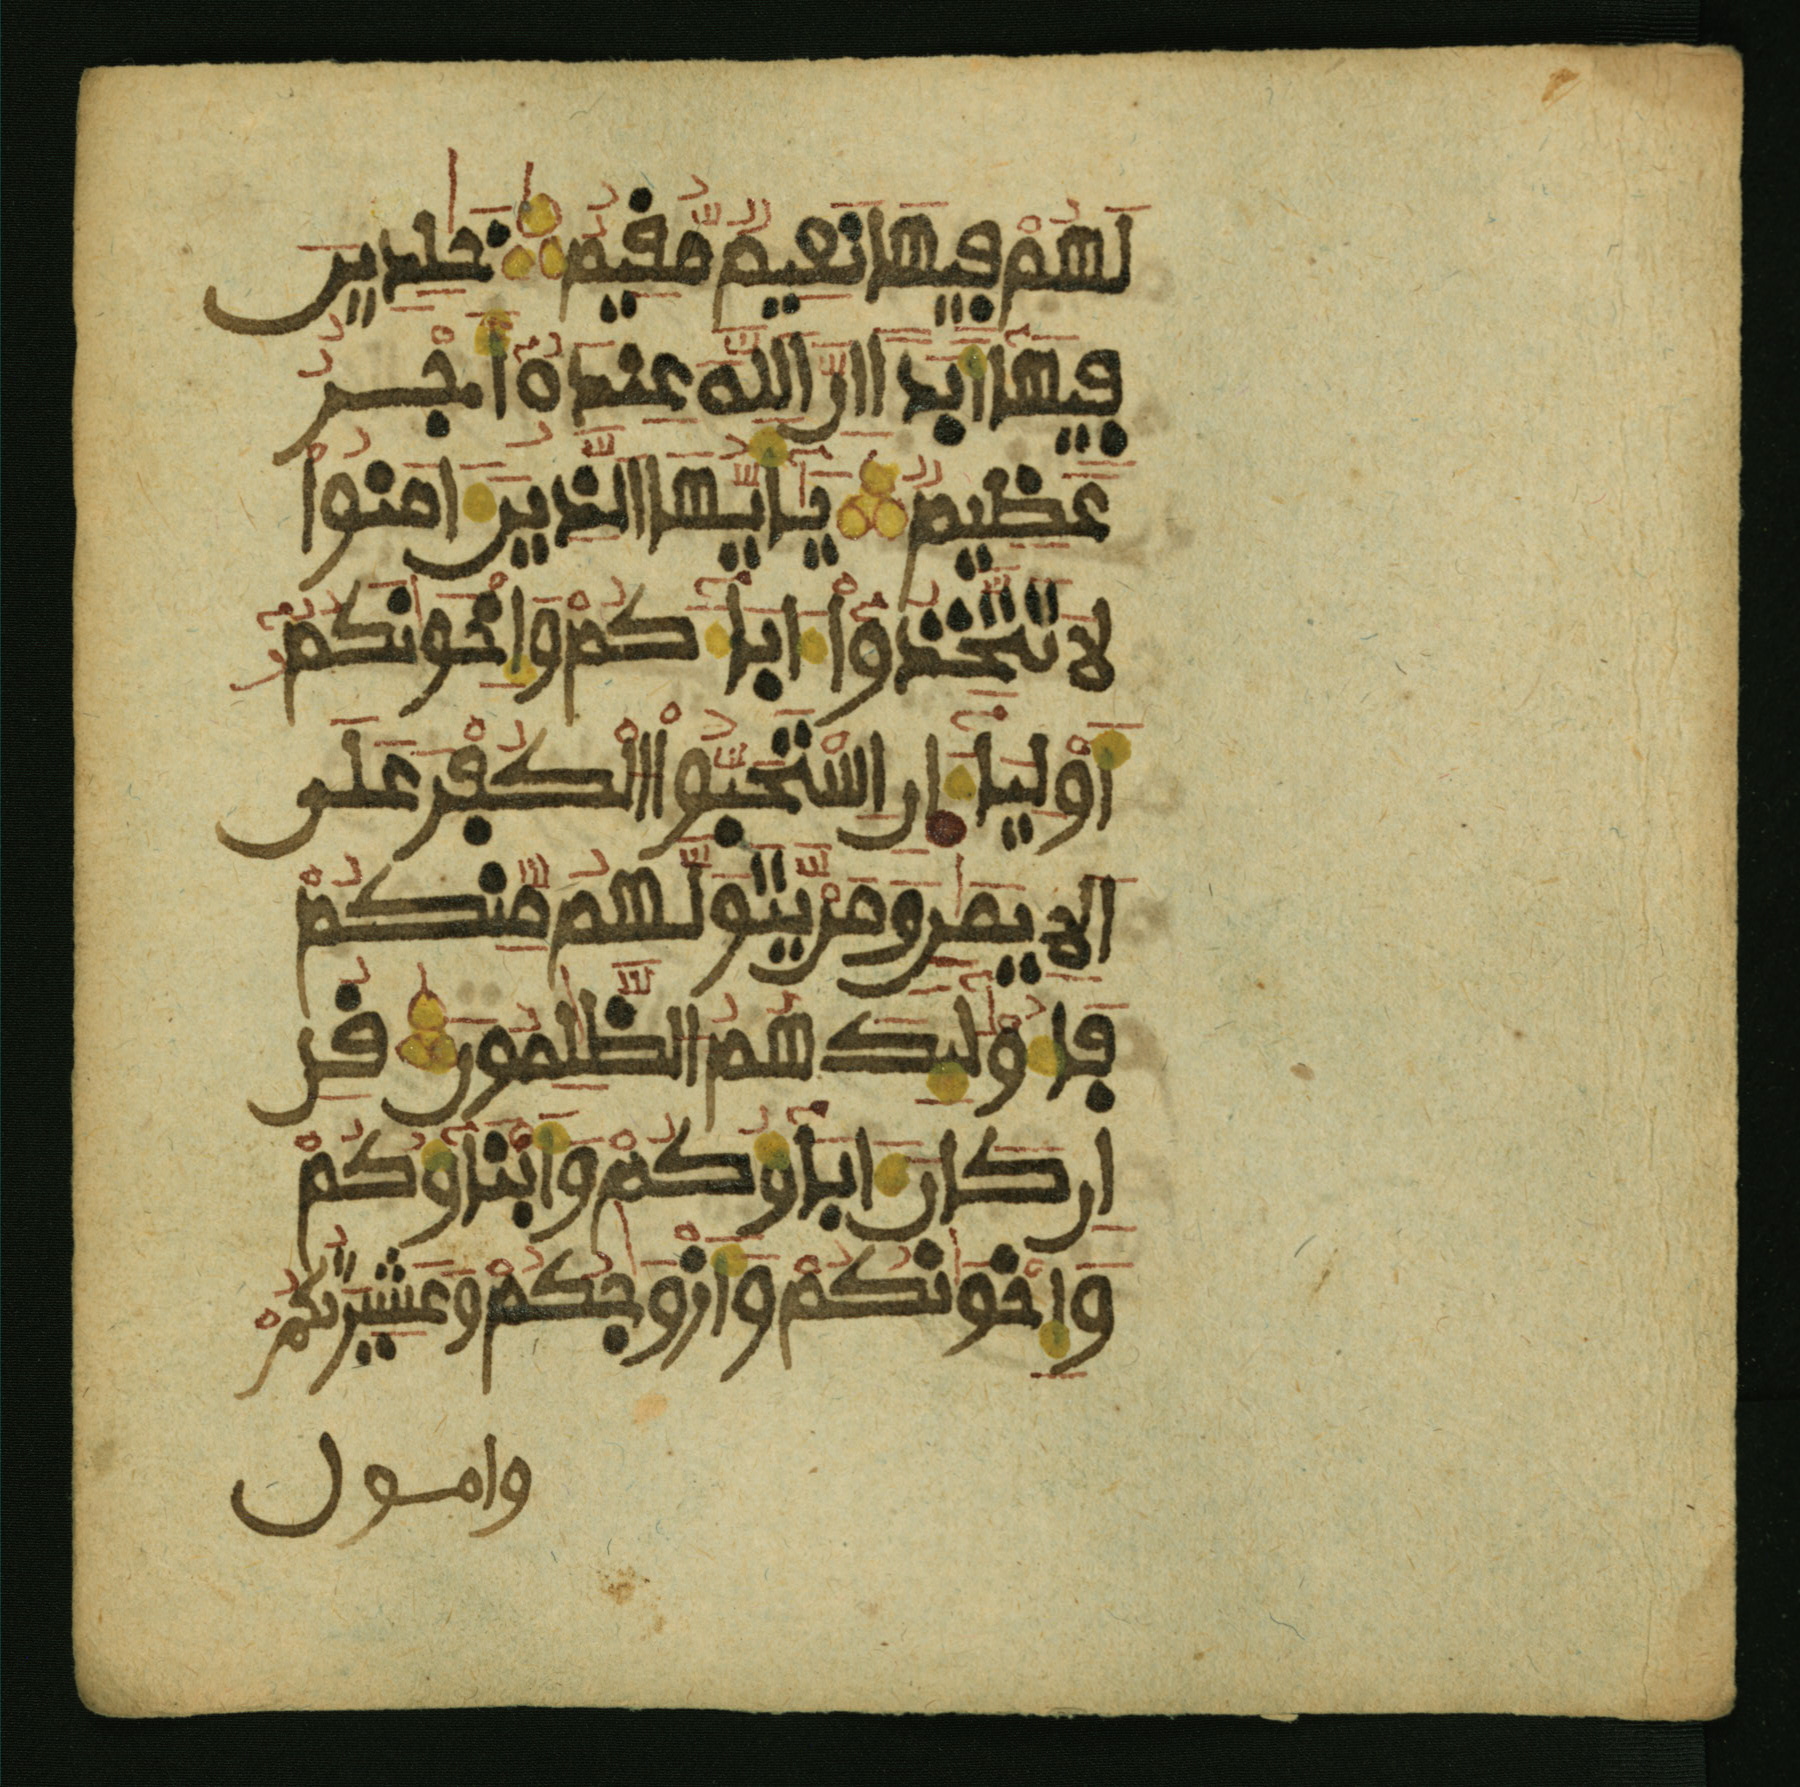 لَهُمْ فِيهَا نَعِيمٌ مُّقِيمٌ خَٰلِدِينَ
فِيهَا أَبَدًا إِنَّ اللَّهَ عِندَهُ أَجْرٌ
عَظِيمٌ يَٰأَيُّهَا الَّذِينَ ءَامَنُوا
لَا تَتَّخِذُوا ءَابَاءَكُمْ وَإِخْوَٰنَكُمْ
أَوْلِيَاءَ إِنِ اسْتَحَبُّوا الْكُفْرَ عَلَى
الْإِيمَٰنِ وَمَنْ يَتَوَلَّهُم مِّنكُمْ
فَأُولَٰئِكَ هُمُ الظَّٰلِمُونَ قُلْ
إِن كَانَ ءَابَاؤُكُمْ وَأَبْنَاؤُكُمْ
وَإِخْوَٰنُكُمْ وَأَزْوَٰجُكُمْ وَعَشِيرَتُكُمْ
وامول